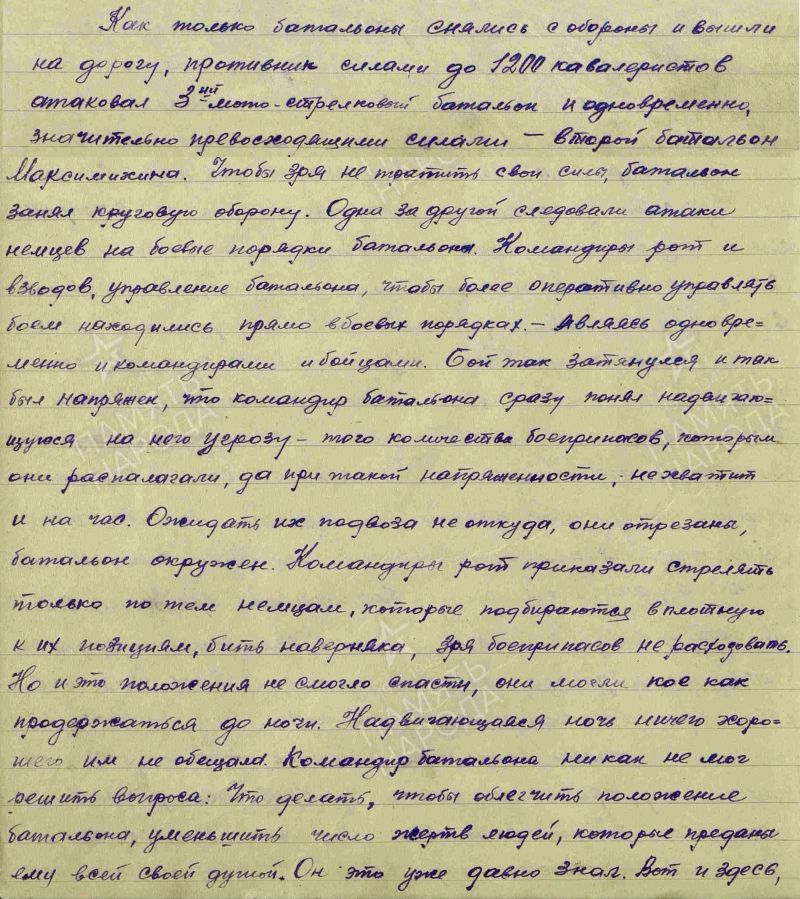 Как только батальоны снялись с обороны и вышли
на дорогу, противник силами до 1200 кавалеристов
атаковал 3ий мото-стрелковый батальон и одновременно,
значительно превосходящими силами — второй батальон
Максимихина. Чтобы зря не тратить свои силы, батальон
занял круговую оборону. Одна за другой следовали атаки
немцев на боевые порядки батальона. Командиры рот и
взводов, управление батальона, чтобы более оперативно управлять
боем находились прямо в боевых порядках. — являясь одновре=
менно и командирами и бойцами. Бой так затянулся и так
был напряжен, что командир батальона сразу понял надвигаю=
щуюся на него угрозу — того количества боеприпасов, которым
они распалагали, да при такой напряженности, не хватит
и на час. Ожидать их подвоза не откуда, они отрезаны,
батальон окружен. Командиры рот приказали стрелять
только по тем немцам, которые подбираются вплотную
к их позициям, бить наверняка, зря боеприпасов не расходовать.
Но и это положения не смогло спасти, они могли кое как
продержаться до ночи. Надвигающаяся ночь ничего хоро=
шего им не обещала. Командир батальона ни как не мог
решить вопроса: Что делать, чтобы облегчить положение
батальона, уменьшить число жертв людей, которые преданы
ему всей своей душой. Он это уже давно знал. Вот и здесь,
ПАМЯТЬ
НАРОДА
ПАМЯТЬ
НАРОДА
ПАМЯТЬ
НАРОДА